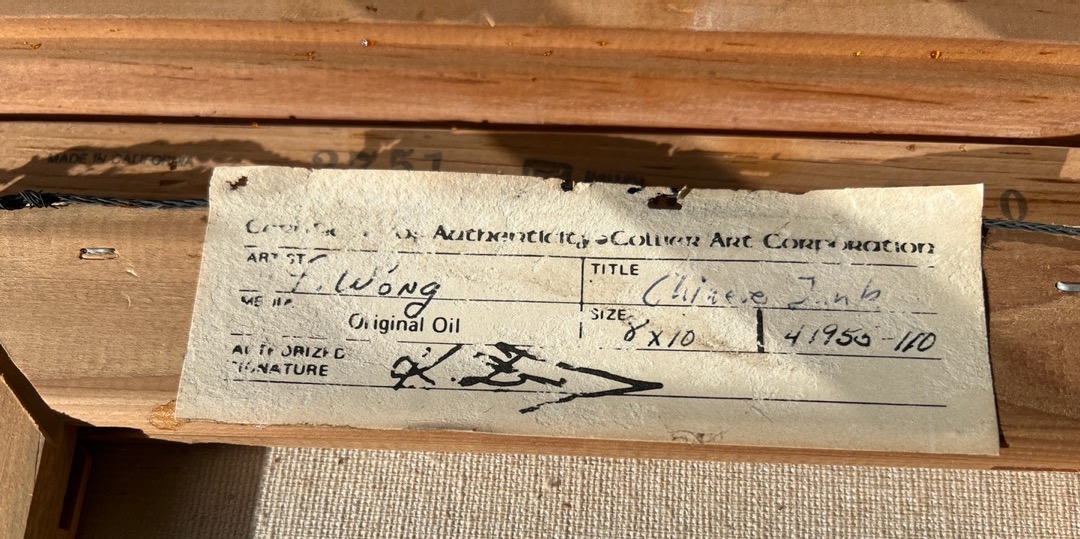 MADE IN CALIFORNIA
Authenticity Collier Art Corporation
ARTIST
T. Wong
TITLE
Chinese Junk
MEDIA
Original Oil
SIZE
8 x 10
41955-110
AUTHORIZED
SIGNATURE